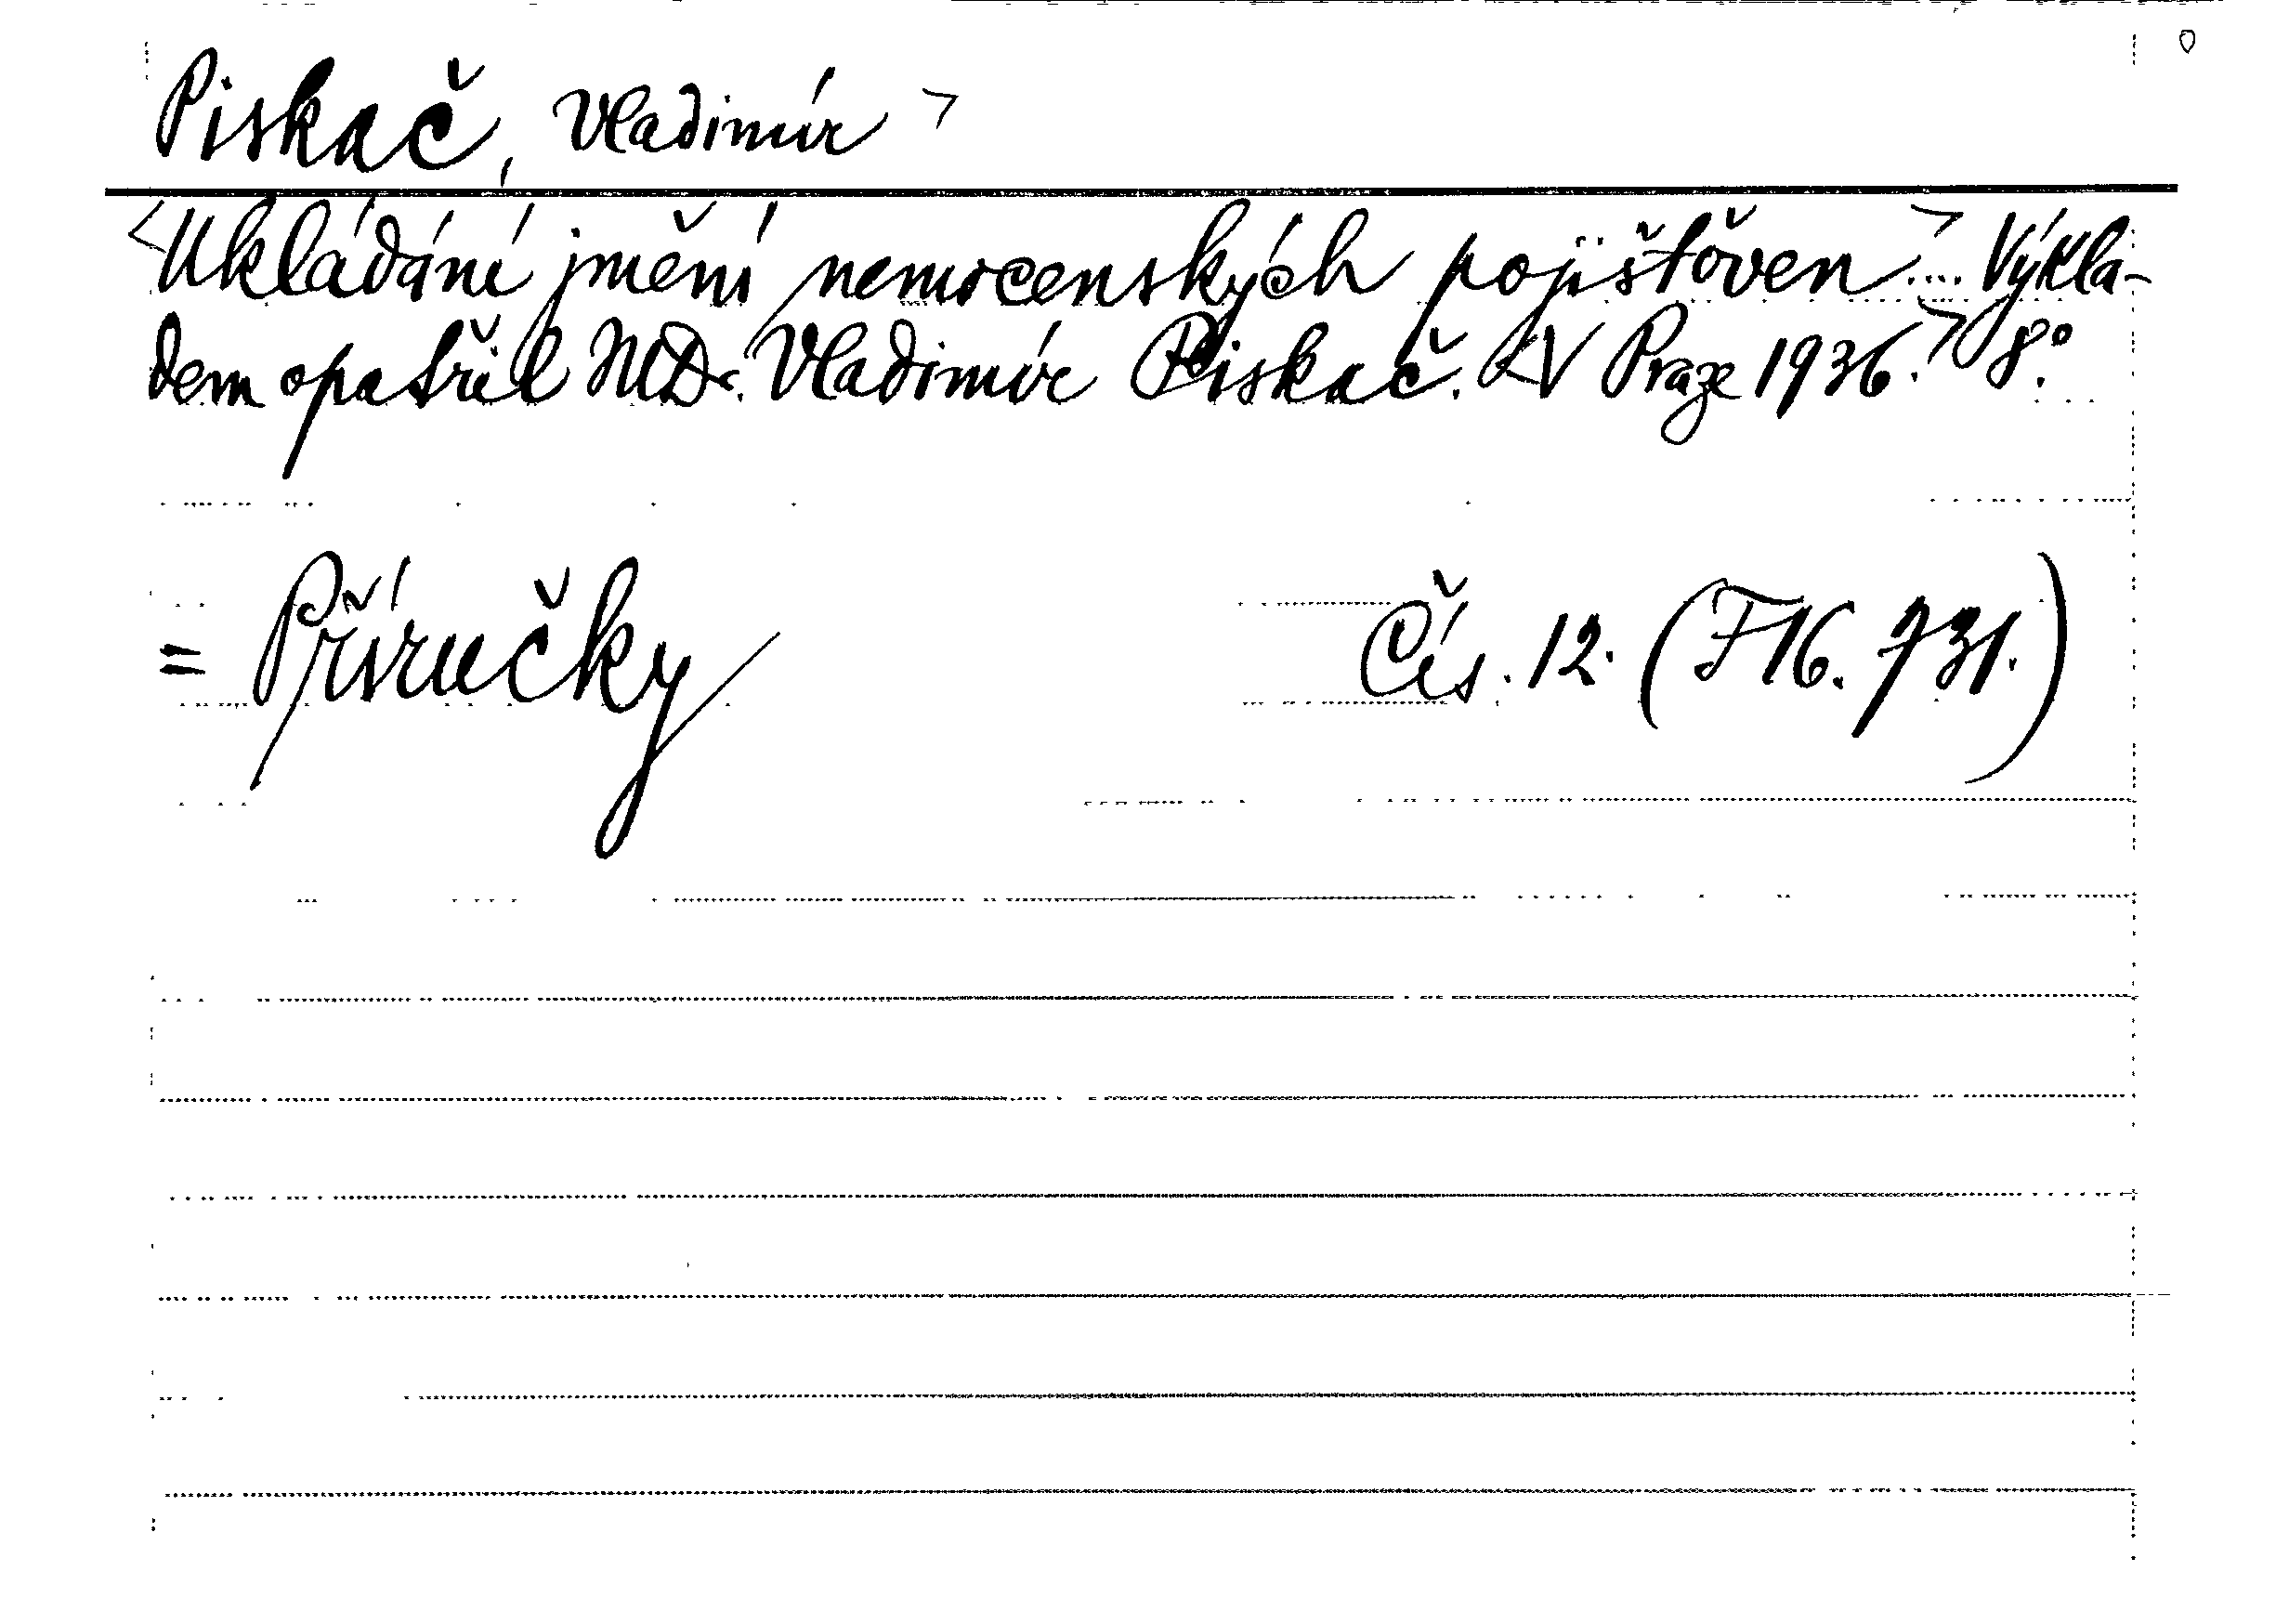 Piskač, Vladimír >
<Ukládání jmění nemocenských pojišťoven > ... Výkla-
dem opatřil JUDr. Vladimír Piskač. <V Praze 1936. > 8°.
= Příručky Čís. 12. (F 16. 731.)